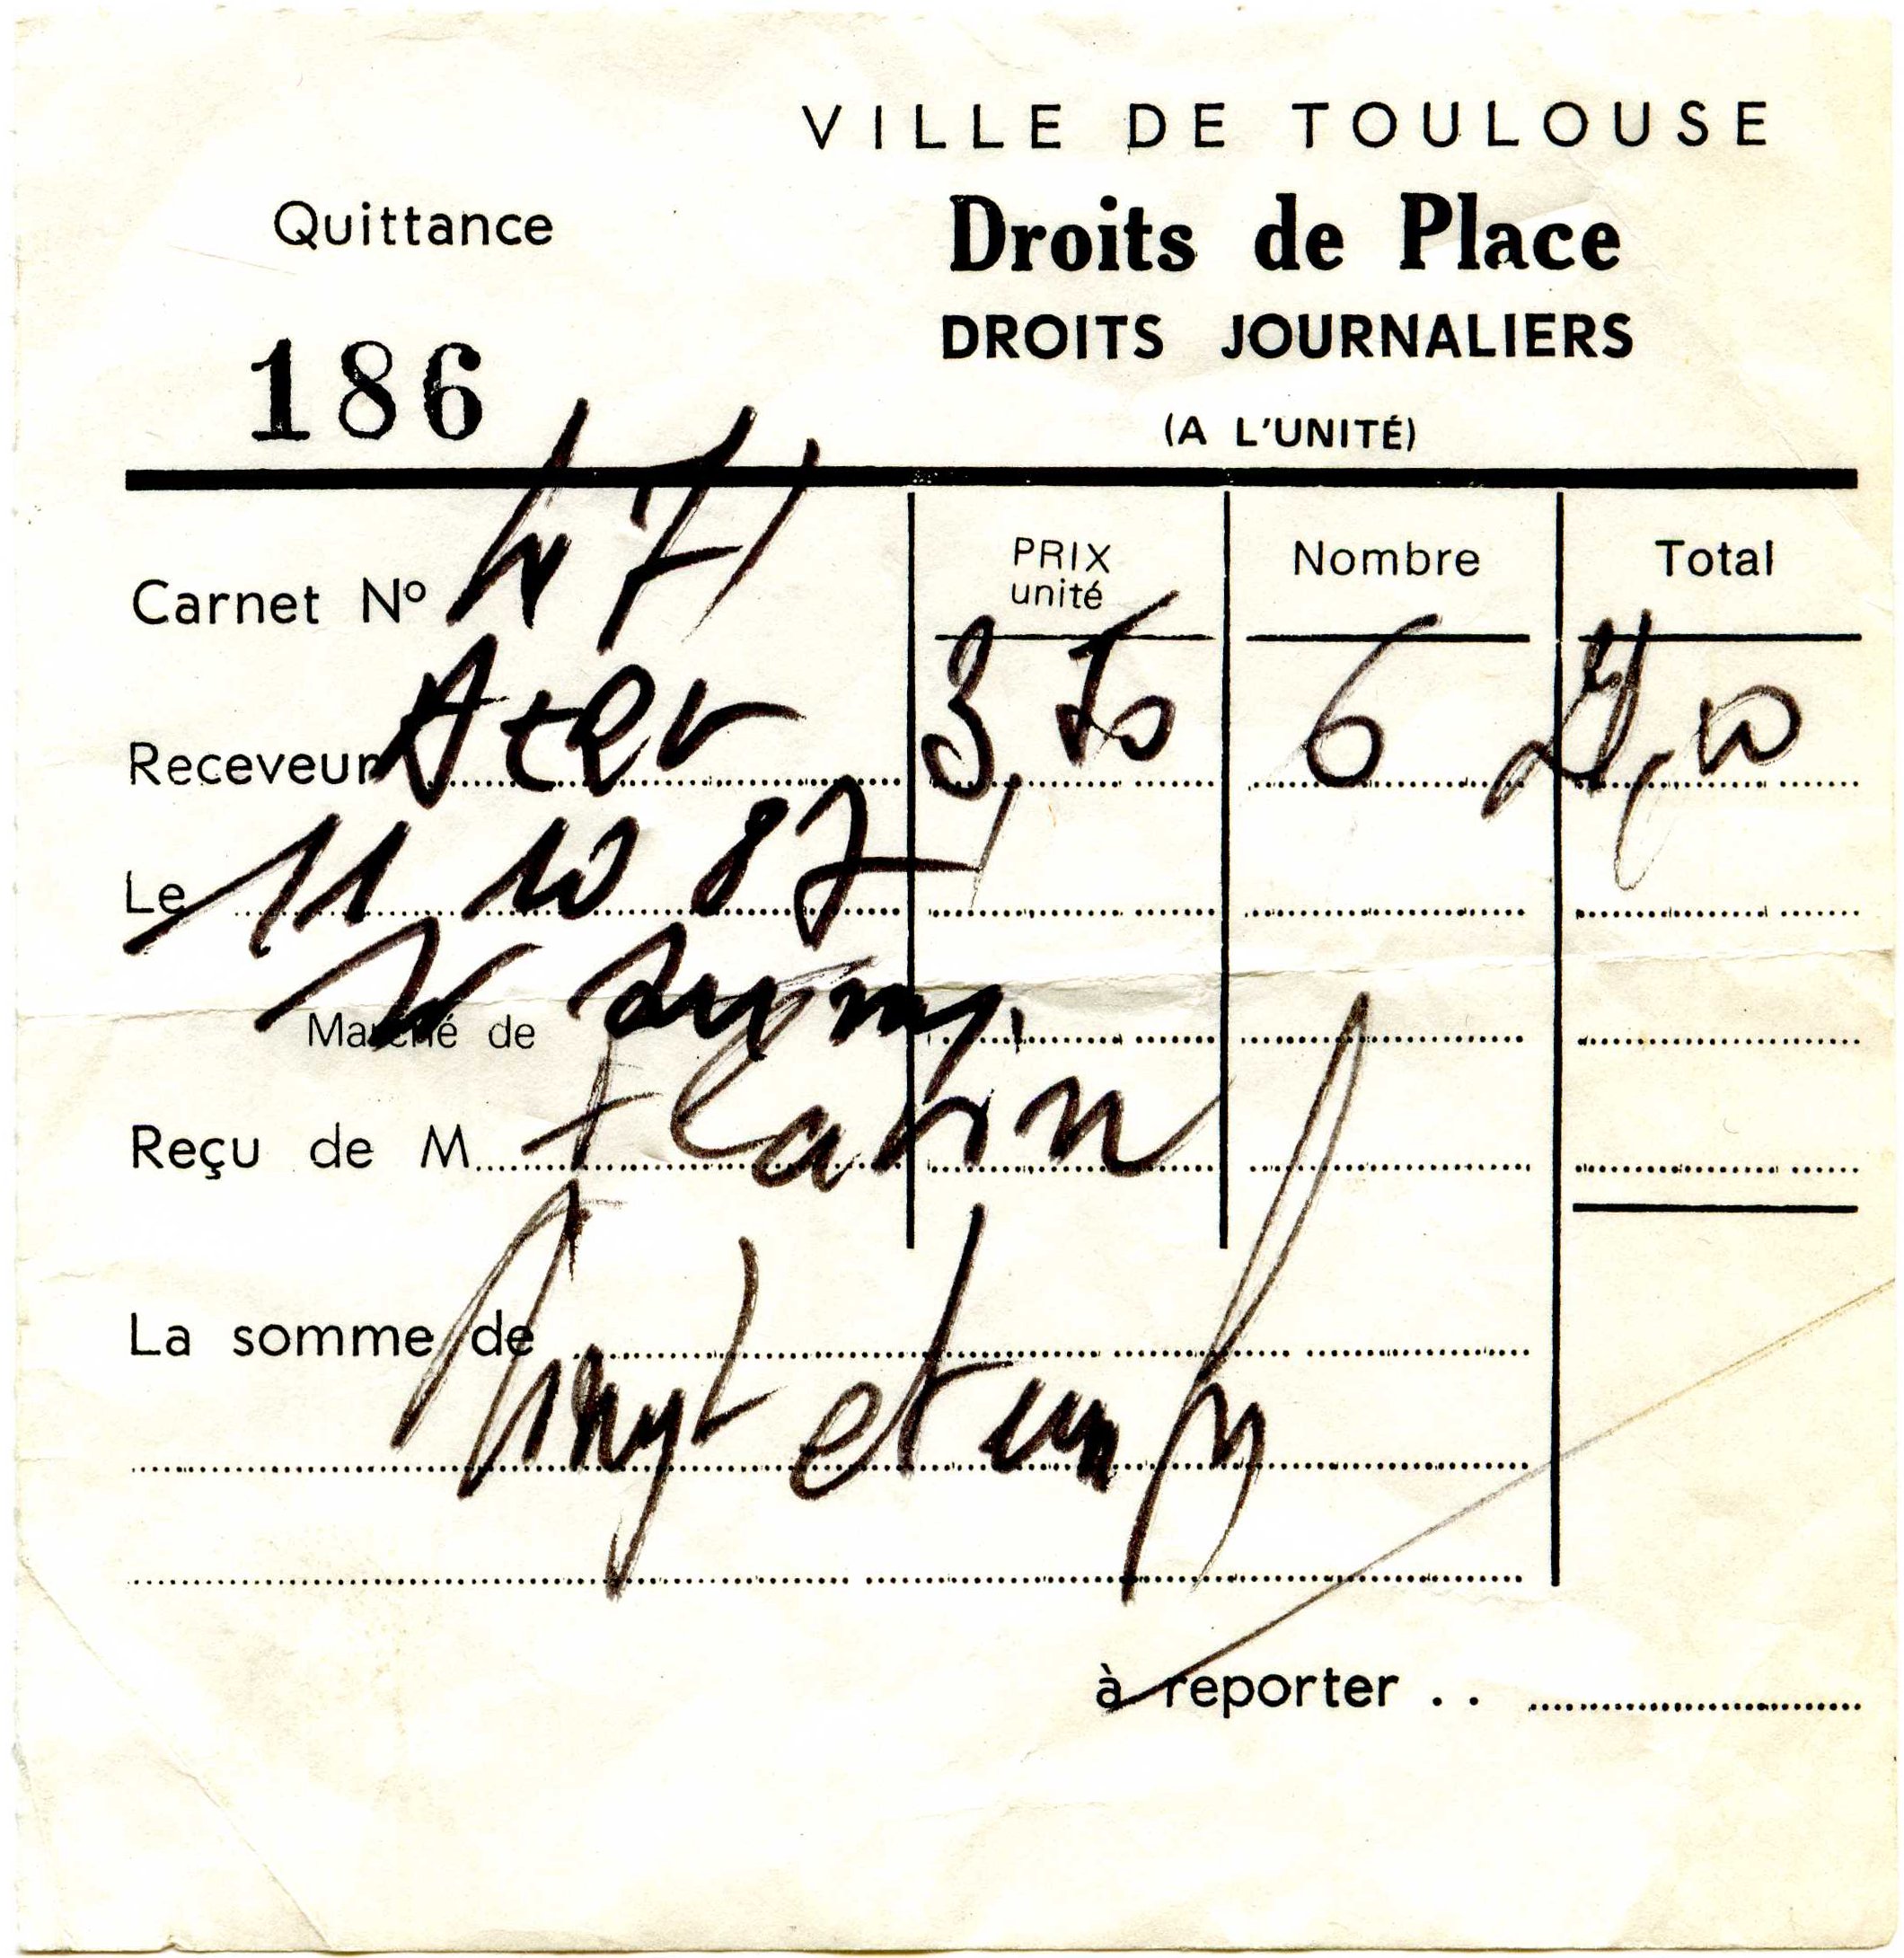 VILLE DE TOULOUSE
Quittance
Droits de Place
DROITS JOURNALIERS
186
(A L'UNITÉ)
Carnet Nº 471
PRIX unité
Nombre
Total
Receveur
3,50 6 21,00
Le 11 10 87
Marché de
Reçu de M
La somme de
Vingt et un
à reporter . .